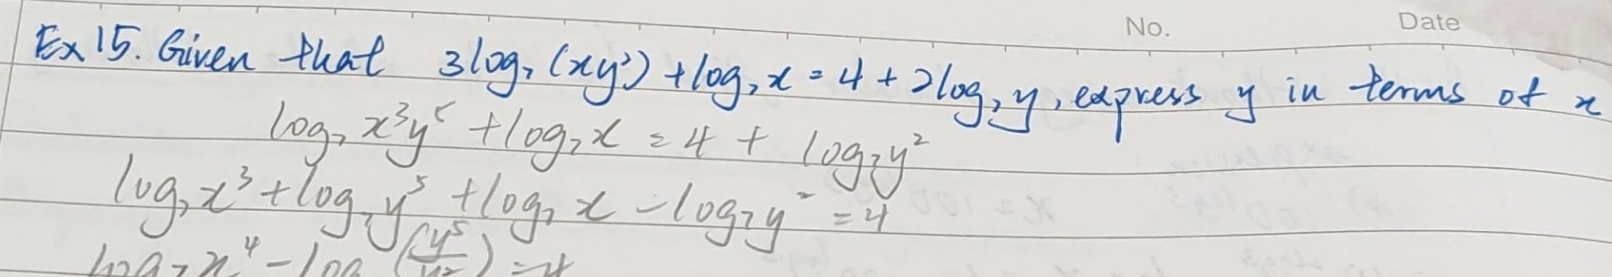 No. Date
Ex 15. Given that 3log₇(xy²) + log₇x = 4 + 2log₇y, express y in terms of x
log₇x³y⁵ + log₇x = 4 + log₇y²
log₇x³ + log₇y⁵ + log₇x - log₇y² = 4
log₇x⁴ - log (y⁵/y²) = 4